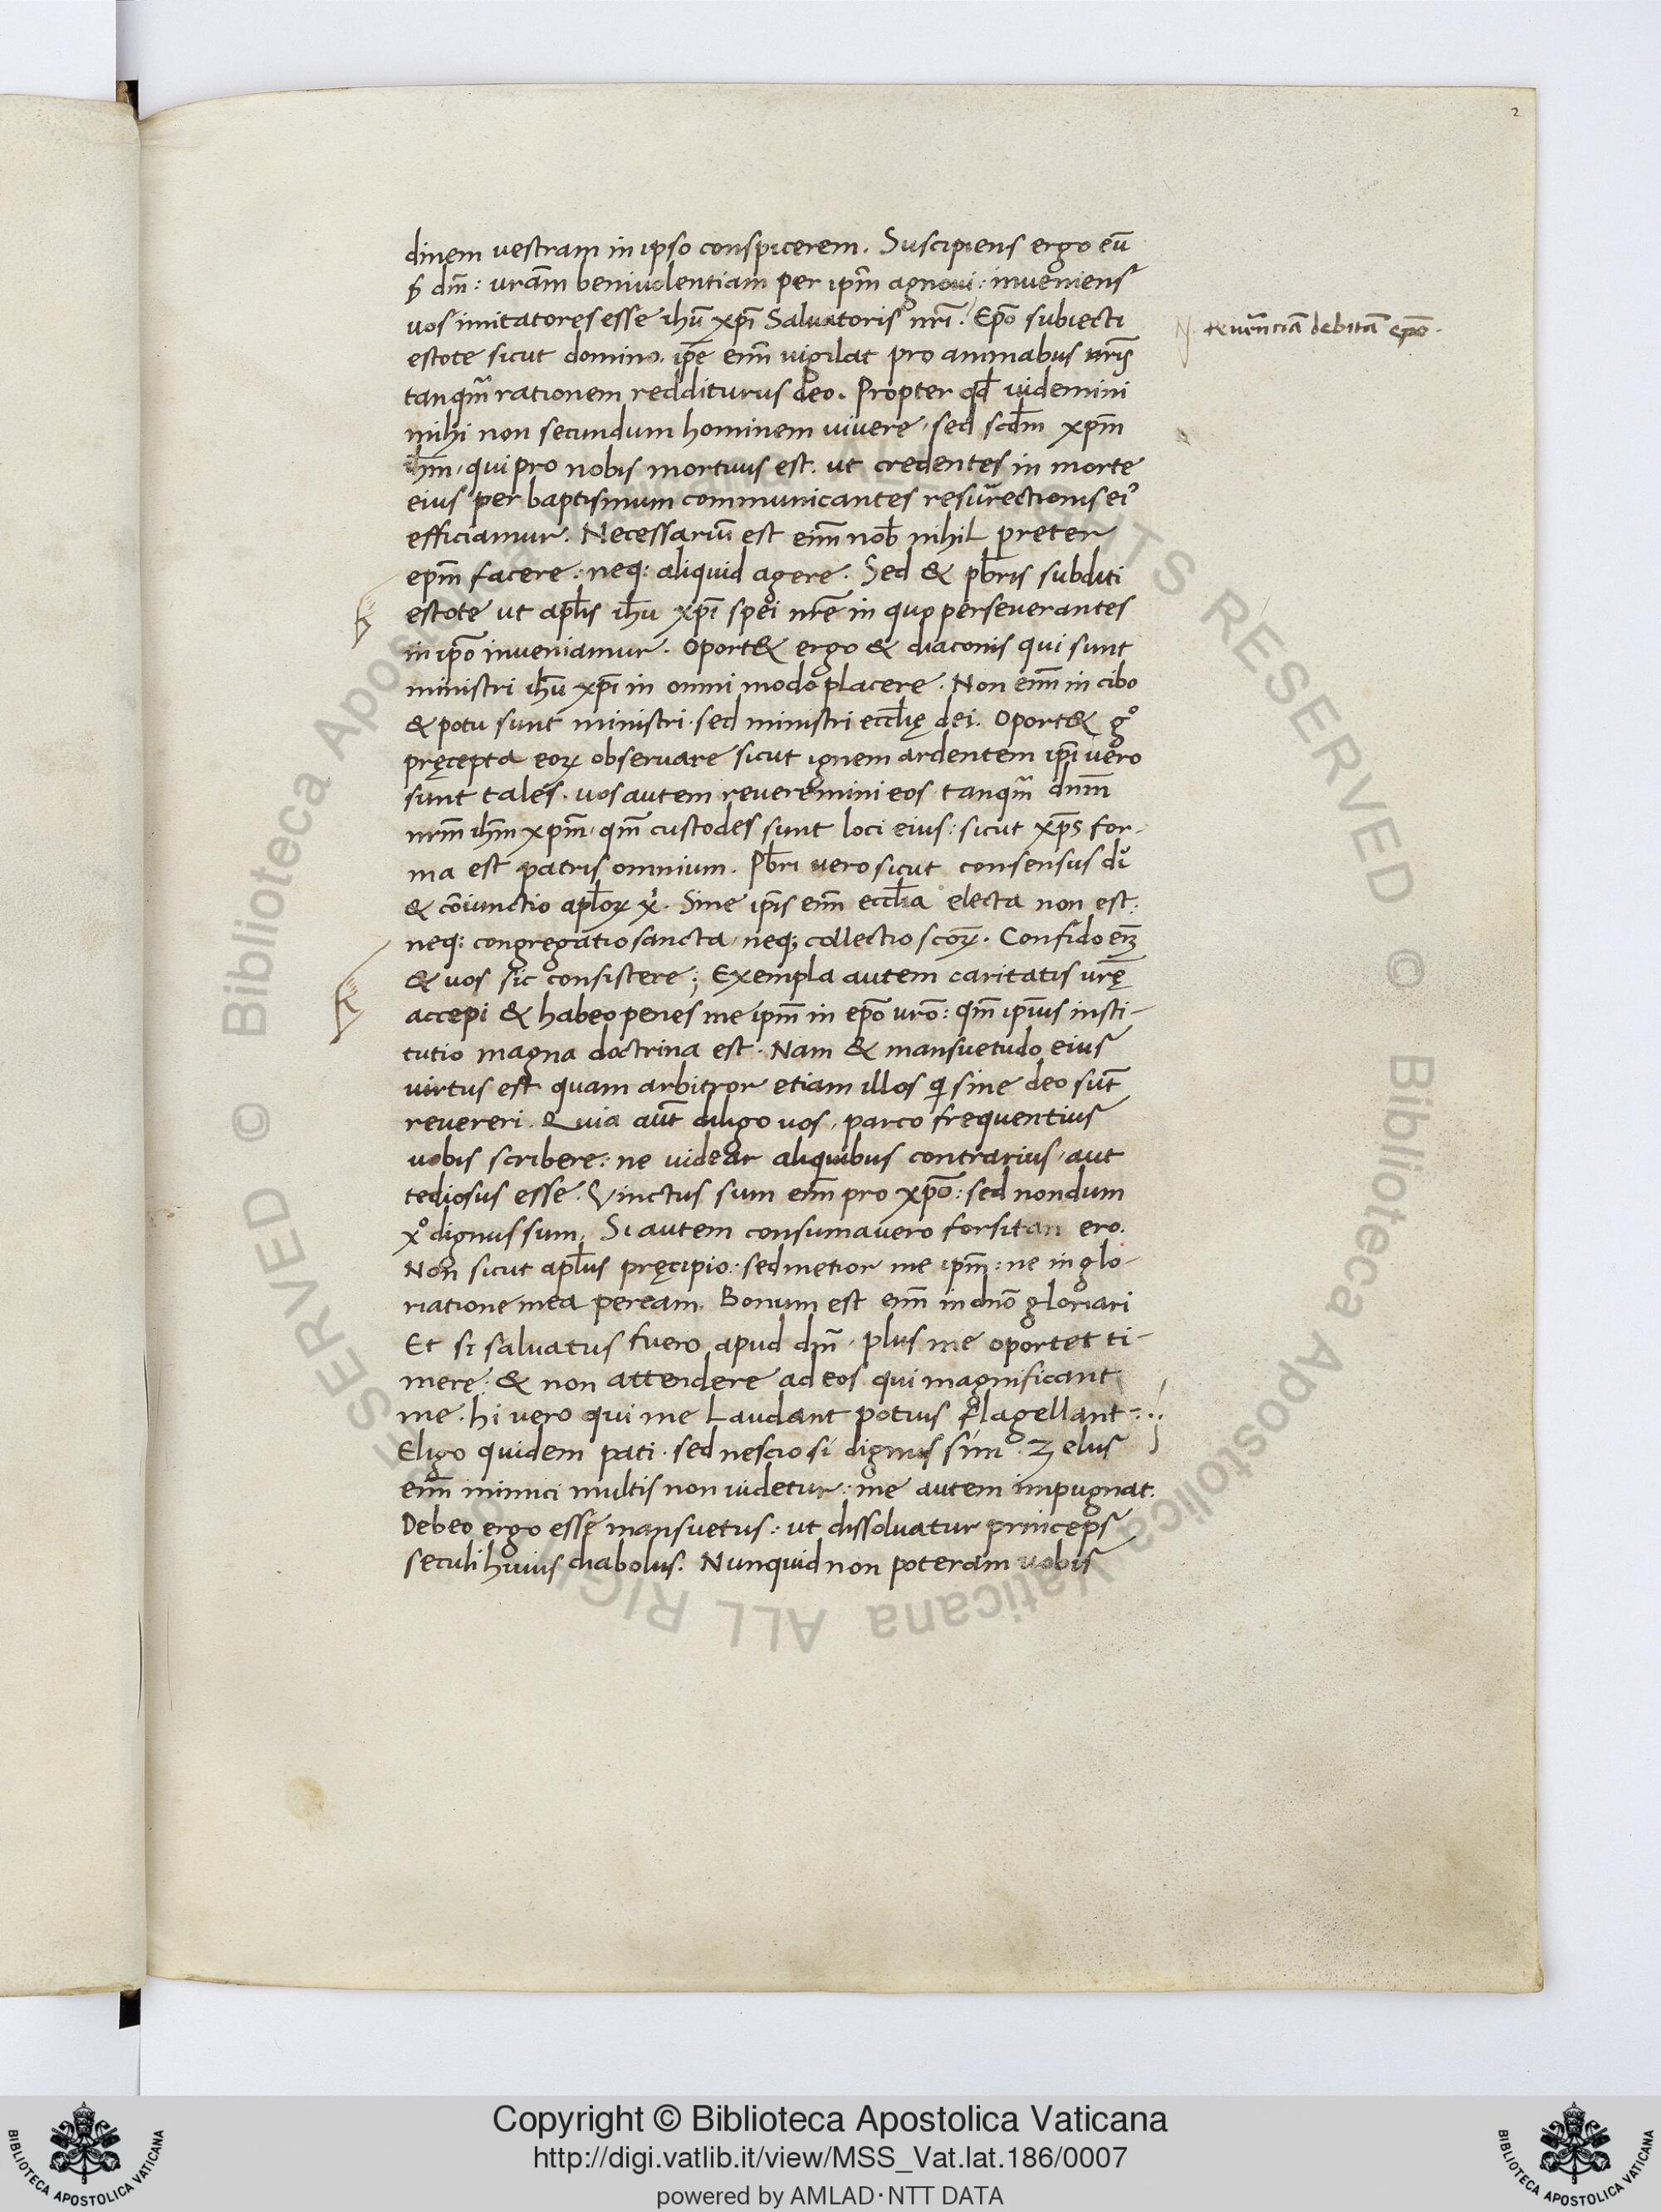 2
dinem vestram in ipso conspicerem. Suscipiens ergo eū
dm̄: vrām benivolentiam per ipm̄ agnovi: inveniens
vos imitatores esse ihū xpī Salvatoris nrī. Epō subiecti
Reverēciā debitā epō.
estote sicut domino. ipē enī vigilat pro animabus vrīs
tanqm̄ rationem redditurus deo. Propter qd̄ videmini
mihi non secundum hominem vivere, sed scdm̄ xpm̄
ihm̄, qui pro nobis mortuus est. ut credentes in morte
eius per baptismum communicantes resurrectionis ei᾽
efficiamur. Necessariū est enim nob̄ nihil preter
epm̄ facere: neq: aliquid agere. Sed & pbr̄is subditi
estote ut apl̄is ihū xpī spei nrē in quo perseverantes
in ipō inveniamur. Oport& ergo & diaconis qui sunt
ministri ihū xpī in omni modo placere. Non enī in cibo
& potu sunt ministri. sed ministri eccl̄ię dei. Oport& g°
pręcepta eoꝝ observare sicut ignem ardentem ipī vero
sunt tales. vos autem reveremini eos tanqm̄ dnm̄
nrm̄ ihm̄ xpm̄, qm̄ custodes sunt loci eius: sicut xps̄ for-
ma est patris omnium. Pbr̄i vero sicut consensus dī
& cōiunctio apl̄oꝝ xⁱ. Sine ipīs enī eccl̄ia electa non est:
neq: congregatio sancta, neq; collectio scōꝝ. Confido enī
& vos sic consistere; Exempla autem caritatis vrę̄
accepi & habeo penes me ipm̄ in epō vrō: qm̄ ipīus insti-
tutio magna doctrina est. Nam & mansuetudo eius
virtus est quam arbitror etiam illos qⁱ sine deo sūt
revereri. Quia aūt diligo vos, parco frequentius
vobis scribere: ne videar aliquibus contrarius, aut
tediosus esse. Vinctus sum enī pro xpō: sed nondum
x° dignus sum. Si autem consumavero forsitan ero.
Non sicut apl̄us pręcipio: sed metior me ipm̄: ne in glo-
riatione mea peream. Bonum est enī in dnō gloriari
Et si salvatus fuero apud dm̄, plus me oportet ti-
mere: & non attendere ad eos qui magnificant
me. hi vero qui me Laudant potius flagellant:
Eligo quidem pati. sed nescio si dignus sim. Zelus
enī inimici multis non videtur: me autem impugnat.
Debeo ergo esse mansuetus: ut dissolvatur princeps
seculi huius diabolus. Nunquid non poteram vobis
© Biblioteca Apostolica Vaticana ALL RIGHTS RESERVED © Biblioteca Apostolica Vaticana ALL RIGHTS RESERVED
Copyright © Biblioteca Apostolica Vaticana
http://digi.vatlib.it/view/MSS_Vat.lat.186/0007
powered by AMLAD·NTT DATA
BIBLIOTECA APOSTOLICA VATICANA
BIBLIOTECA APOSTOLICA VATICANA